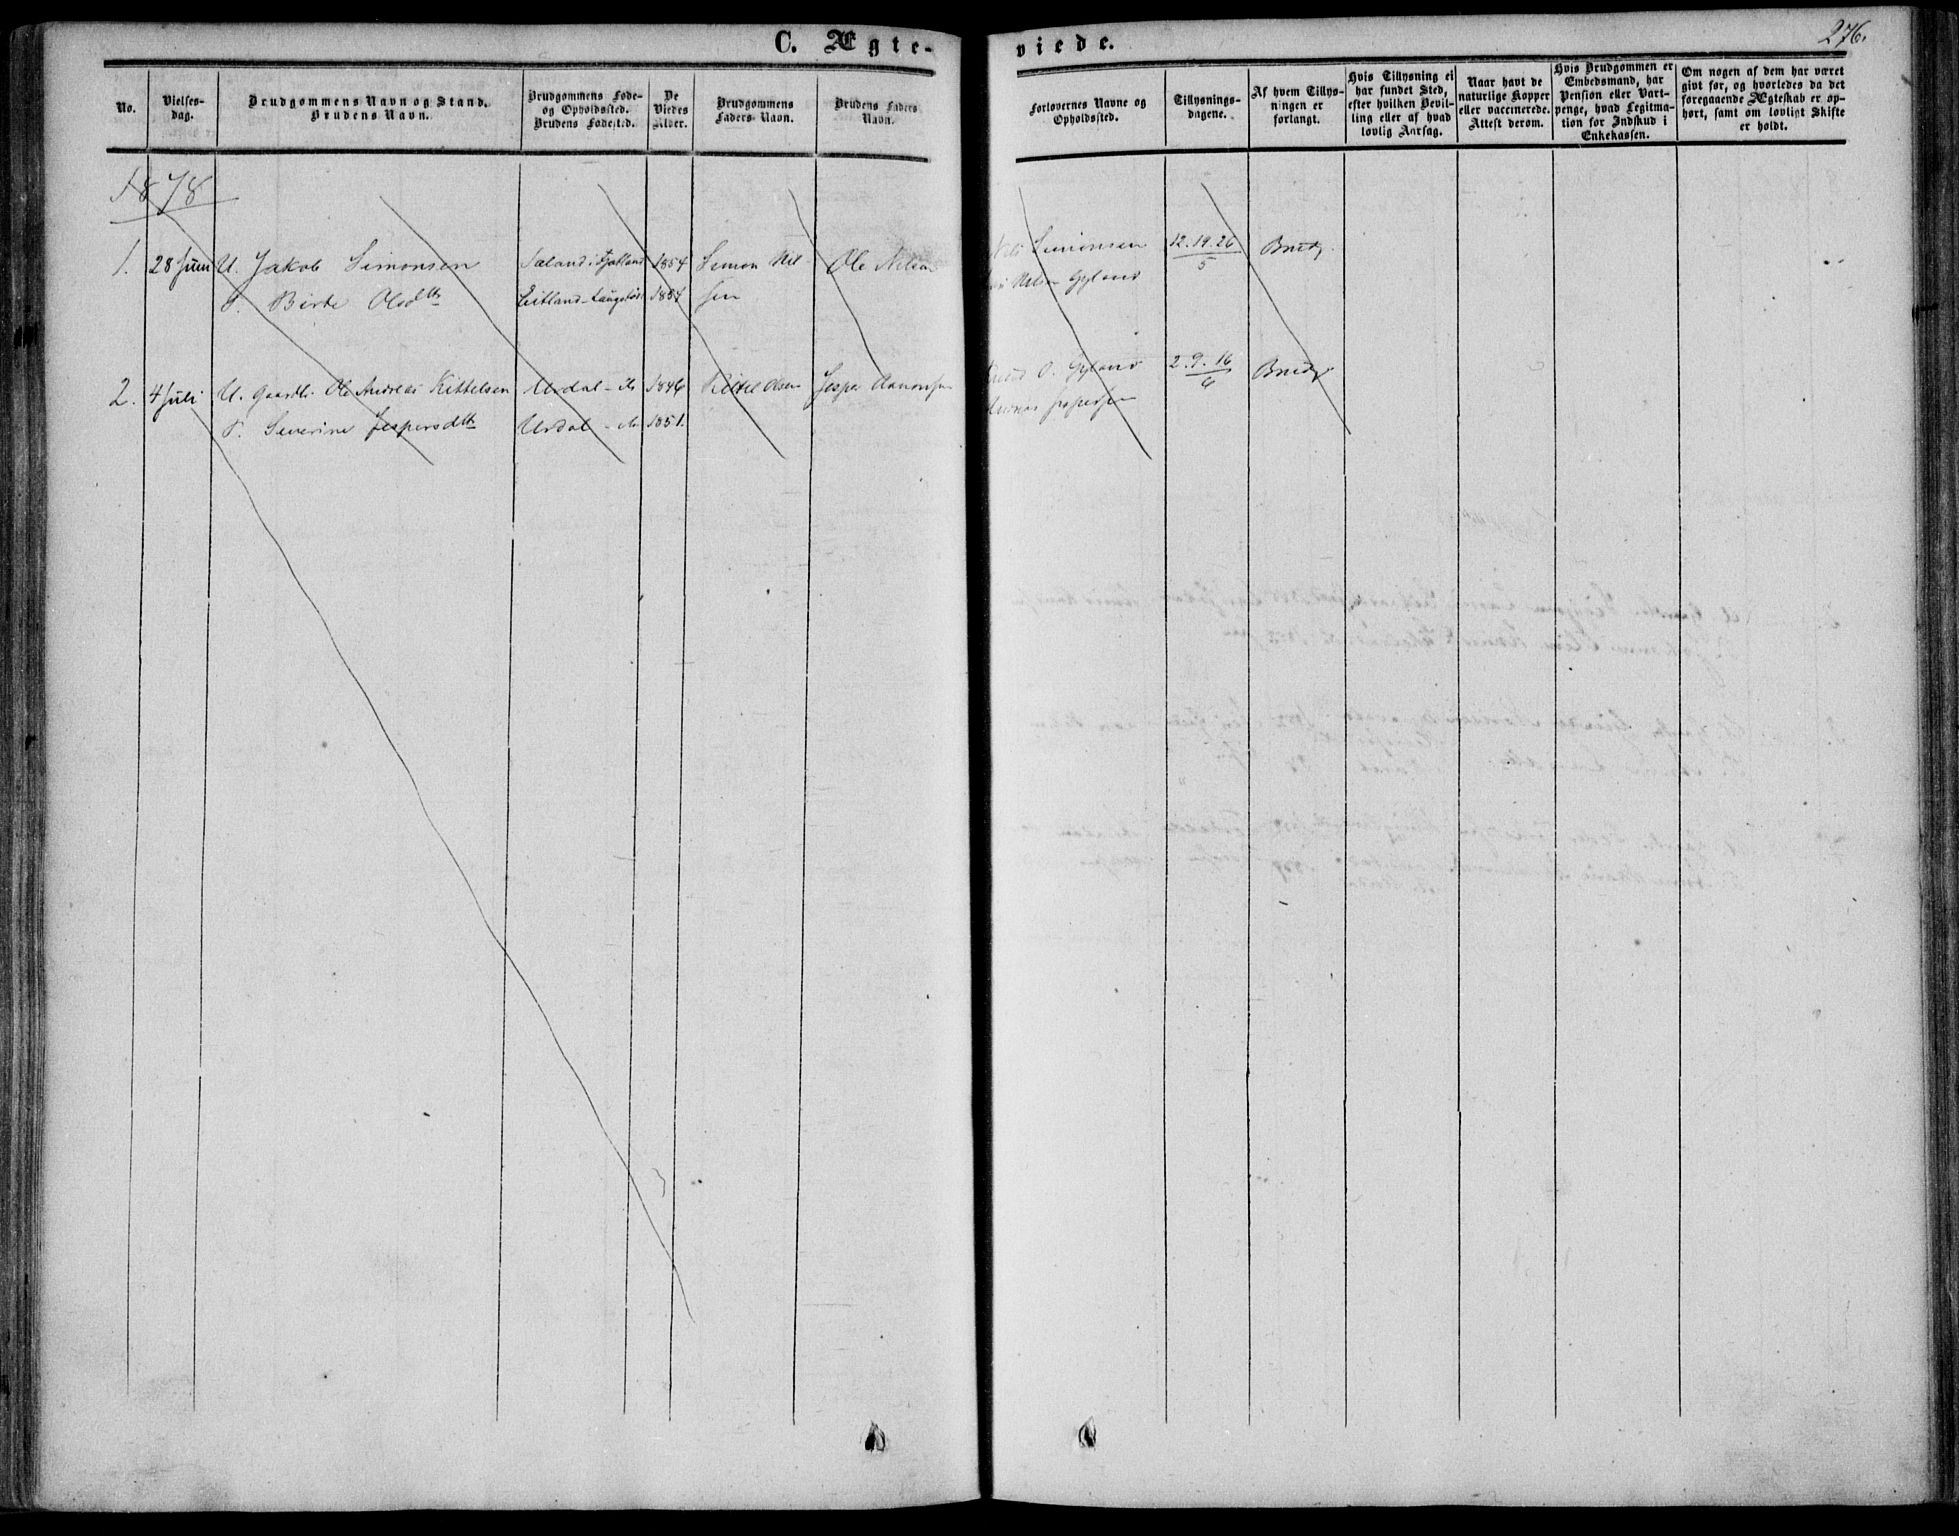 C. Ægte-
viede.
276.
No.
Vielses-
dag.
Brudgommens Navn og Stand.
Brudens Navn.
Brudgommens Føde-
og Opholdssted.
Brudens Fødested.
De
Viedes
Alder.
Brudgommens
Faders Navn.
Brudens Faders
Navn.
Forlovernes Navne og
Opholdssted.
Tillysnings-
dagene.
Af hvem Tillys-
ningen er
forlangt.
Hvis Tillysning ei
har fundet Sted,
efter hvilken Bevil-
ling eller af hvad
lovlig Aarsag.
Naar havt de
naturlige Kopper
eller vaccinerede.
Attest derom.
Hvis Brudgommen er
Embedsmand, har
Pension eller Vart-
penge, hvad Legitima-
tion for Indskud i
Enkekassen.
Om nogen af dem har været
givt før, og hvorledes da det
foregaaende Ægteskab er op-
hørt, samt om lovligt Skifte
er holdt.
1878
1. 28 Juni U. Jakob Simonsen 1854 Simon Nil- Ole Nilsen
P. Birte Olsdtt 1854 sen
Simonsen 12.19.26 Brudg
Nilsen Gyland 5
2. 4 Juli U. Gaardbr. Ole Andreas Kittelsen Urdal 1846 Kittel Olsen Jesper
P. Severine Jespersdtt Urdal 1851.
O. Gyland 2.9.16 Brudg
Jespersen 6